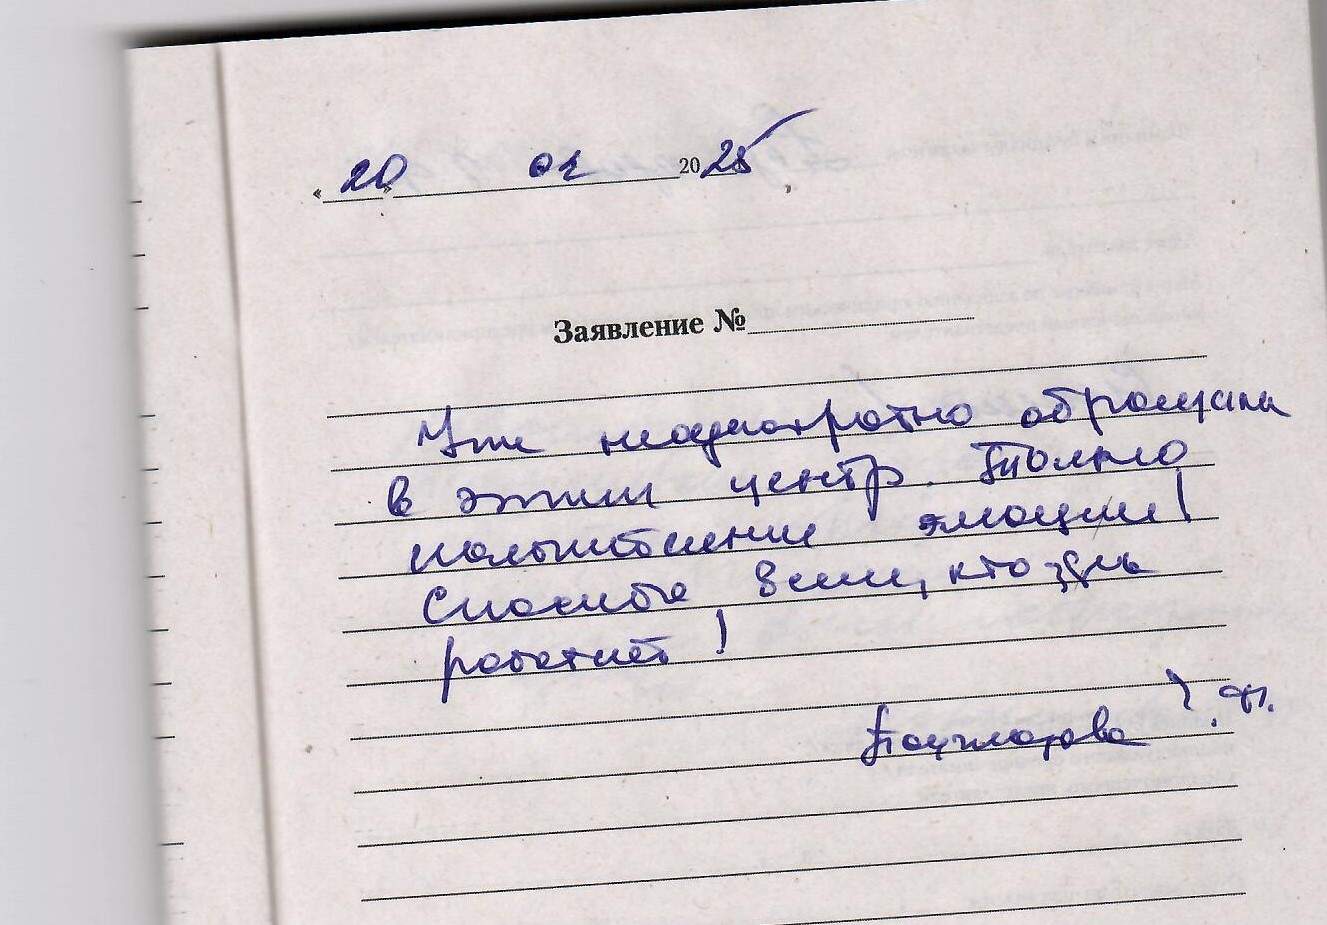 « 20 » 01 2025
Заявление №
Уже неоднократно обращалась
в этот центр. Только
положительные эмоции!
Спасибо всем, кто здесь
работает!